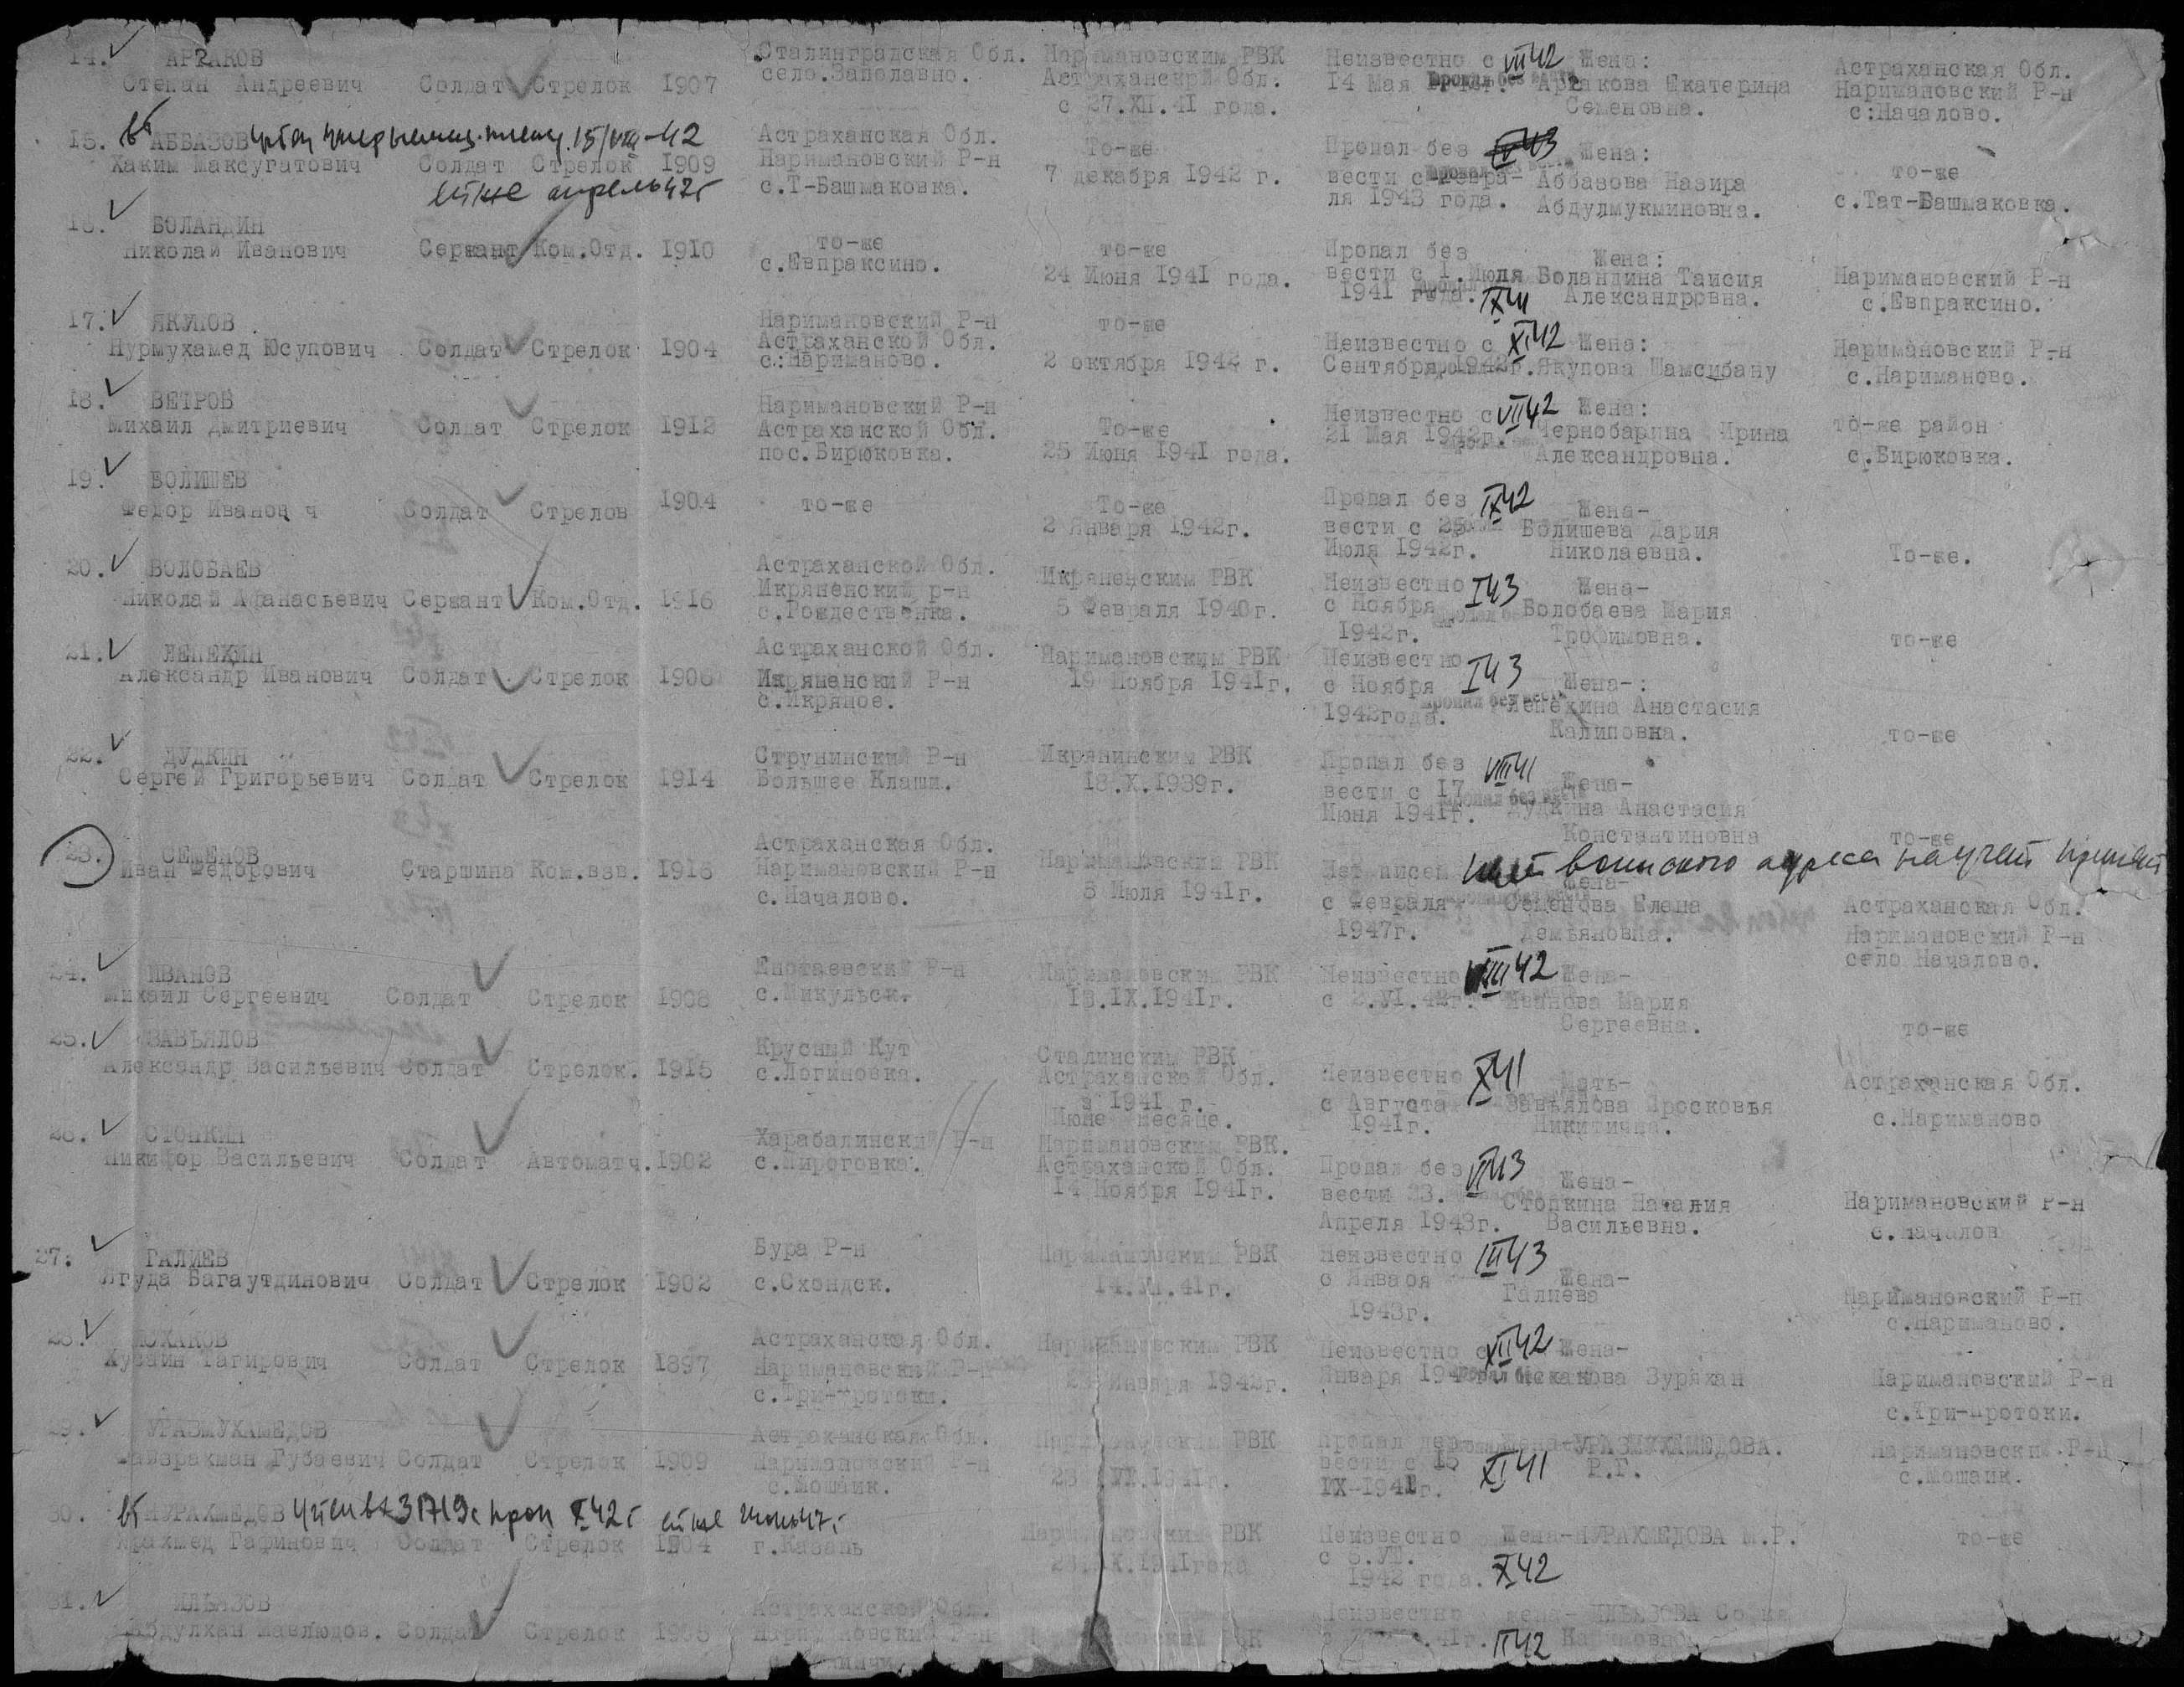 14. АРЗАКОВ
Степан Андреевич Солдат Стрелок 1907
Сталинградская Обл.
село.Заплавно.
Наримановским РВК
Астраханской Обл.
с 27.XII.41 года.
Неизвестно с VII 42
14 Мая
Жена:
Арзакова Екатерина
Семеновна.
Астраханская Обл.
Наримановский Р-н
с:Началово.
15. АББАЗОВ 15/VIII-42
Хаким Максугатович Солдат Стрелок 1909
апрель 42г
Астраханская Обл.
Наримановский Р-н
с.Т-Башмаковка.
То-же
7 декабря 1942 г.
Пропал без
вести с Февра-
ля 1943 года.
Жена:
Аббазова Назира
Абдулмукминовна.
то-же
с.Тат-Башмаковка.
16. БОЛАНДИН
Николай Иванович Сержант Ком.Отд. 1910
то-же
с.Евпраксино.
то-же
24 Июня 1941 года.
Пропал без
вести с 1.Июля
1941 года. IX 41
Жена:
Боландина Таисия
Александровна.
Наримановский Р-н
с.Евпраксино.
17. ЯКУПОВ
Нурмухамед Юсупович Солдат Стрелок 1904
Наримановский Р-н
Астраханской Обл.
с:Нариманово.
то-же
2 октября 1942 г.
Неизвестно с XI 42
Сентября 1942г.
Жена:
Якупова Шамсибану
Наримановский Р-н
с.Нариманово.
18. ВЕТРОВ
Михаил Дмитриевич Солдат Стрелок 1912
Наримановский Р-н
Астраханской Обл.
пос.Бирюковка.
То-же
25 Июня 1941 года.
Неизвестно с VII 42
21 Мая 1942г.
Жена:
Чернобарина Ирина
Александровна.
то-же район
с.Бирюковка.
19. БОЛИШЕВ
Федор Иванов ч Солдат Стрелов 1904
то-же
То-же
2 Января 1942г.
Пропал без IX 42
вести с 25
Июля 1942г.
Жена-
Болишева Дария
Николаевна.
То-же.
20. ВОЛОБАЕВ
Николай Афанасьевич Сержант Ком.Отд. 1916
Астраханской Обл.
Икряненский р-н
с.Рождественка.
Икряненским РВК
5 Февраля 1940г.
Неизвестно I 43
с Ноября
1942г.
Жена-
Волобаева Мария
Трофимовна.
то-же
21. ЛЕПЕХИН
Александр Иванович Солдат Стрелок 1906
Астраханской Обл.
Икряненский Р-н
с.Икряное.
Наримановским РВК
19 Ноября 1941г.
Неизвестно I 43
с Ноября
1942года.
Жена-:
Лепехина Анастасия
Калиповна.
то-же
22. ДУДКИН
Сергей Григорьевич Солдат Стрелок 1914
Струнинский Р-н
Большее Клаши.
Икрянинским РВК
18.X.1939г.
Пропал без VIII 41
вести с 17
Июня 1941г.
Жена-
Дудкина Анастасия
Константиновна
то-же
23. СЕМЕНОВ
Иван Федорович Старшина Ком.взв. 1918
Астраханская Обл.
Наримановский Р-н
с.Началово.
Наримановским РВК
8 Июля 1941г.
Нет писем
с Февраля
1947г.
нет воинского адреса
Жена-
Семенова Елена
Демьяновна.
Астраханская Обл.
Наримановский Р-н
село Началово.
24. ИВАНОВ
Михаил Сергеевич Солдат Стрелок 1908
Енотаевский Р-н
с.Никульск.
Наримановским РВК
18.IX.1941г.
Неизвестно VIII 42
с 2.VI.42г.
Жена-
Иванова Мария
Сергеевна.
то-же
25. ЗАВЬЯЛОВ
Александр Васильевич Солдат Стрелок. 1915
Крусный Кут
с.Логиновка.
Сталинским РВК
Астраханской Обл.
в 1941 г.
Июне месяце.
Неизвестно X 41
с Августа
1941г.
Мать-
Завьялова Просковья
Никитична.
Астраханская Обл.
с.Нариманово
26. СТОПКИН
Никифор Васильевич Солдат Автоматч. 1902
Харабалинский Р-н
с.Пироговка.
Наримановским РВК.
Астраханской Обл.
14 Ноября 1941г.
Пропал без VI 43
вести 23.
Апреля 1943г.
Жена-
Стопкина Наталия
Васильевна.
Наримановский Р-н
с.Началов
27. ГАЛИЕВ
Ягуда Багаутдинович Солдат Стрелок 1902
Бура Р-н
с.Схондск.
Наримановским РВК
14.VI.41г.
Неизвестно III 43
с Января
1943г.
Жена-
Галиева
Наримановский Р-н
с.Нариманово.
28. ИСХАКОВ
Хусаин Тагирович Солдат Стрелок 1897
Астраханская Обл.
Наримановский Р-н
с.Три-протоки.
Наримановским РВК
23 Января 1942г.
Неизвестно с XII 42
Января
Жена-
Исхакова Зурихан
Наримановский Р-н
с.Три-протоки.
29. УРАЗМУХАМЕДОВ
Файзрахман Губаевич Солдат Стрелок 1909
Астраханская Обл.
Наримановский Р-н
с.Мошаик.
Наримановским РВК
23 .VI.1941г.
Пропал без
вести с 15
IX-1941г. XI 41
Жена-УРАЗМУХАМЕДОВА.
Р.Г.
Наримановский Р-н
с.Мошаик.
30. НУРАХМЕДОВ 31719с X 42г
Ярахмед Гафинович Солдат Стрелок 1904
г.Казань
Наримановским РВК
23.IX.1941года
Неизвестно
с 8.VI.
1942 года. X 42
Жена-НУРАХМЕДОВА М.Р.
то-же
31. ИЛЬЯЗОВ
Абдулхан Мавлюдов. Солдат Стрелок 1908
Астраханской Обл.
Наримановский Р-н
РВК
Неизвестно
41г. II 42
жена-ИЛЬЯЗОВА